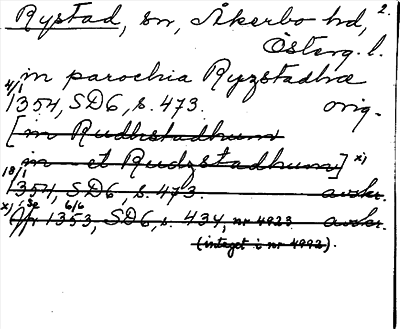 Rystad, sn, Åkerbo hd, 2.
Österg. l.
in parochia Ryzstadhæ
4/1 1354, SD6, s. 473. orig.
[in Rudhstadhum
in et Rudzstadhum] x)
18/1 1354, SD6, s. 473. avskr.
x) Jfr 6/6 1353, SD6, s. 434, nr 4923 avskr.
(intaget i nr 4992).